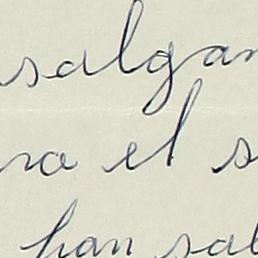 salgan
ra el s
han sal